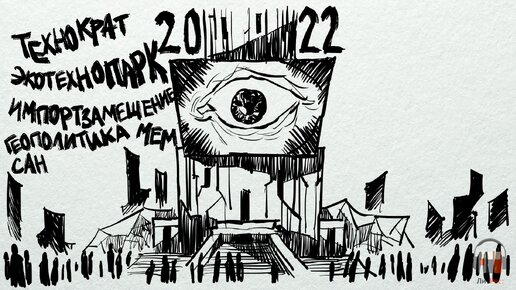 ТЕХНОКРАТ
2022
ЭКОТЕХНОПАРК
ИМПОРТЗАМЕЩЕНИЕ
ГЕОПОЛИТИКА МЕМ
САН